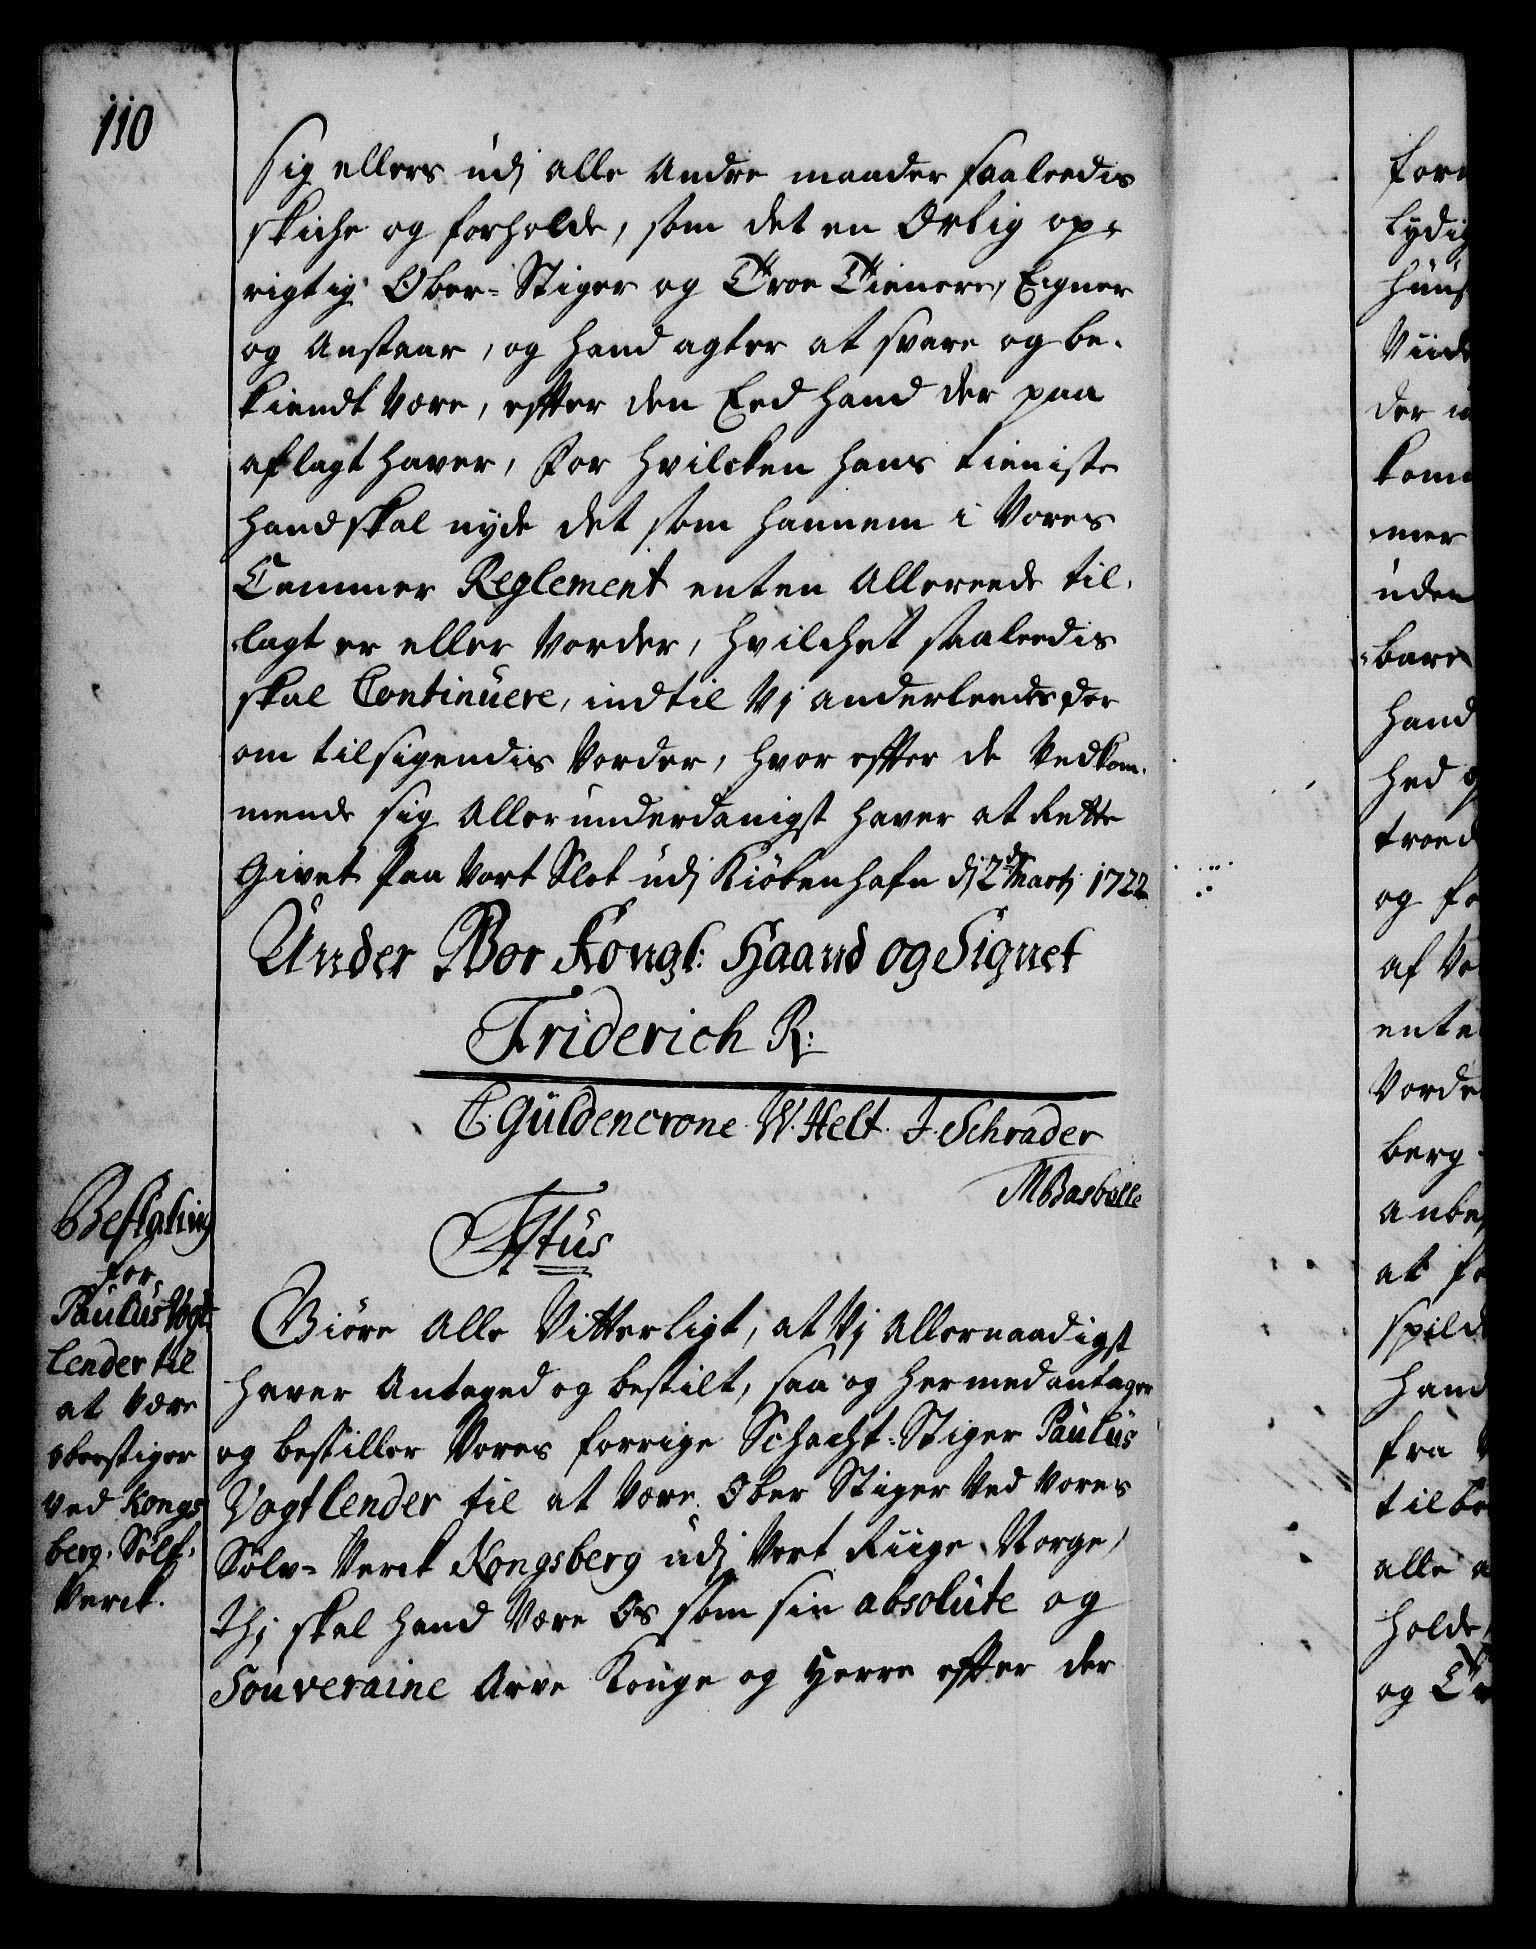 110
sig ellers udj alle Andre maader saaleedis
skiche og forholde, som det en Ærlig op-
rigtig Ober-Stiger og Troe Tienere, Eigner
og Anstaar, og hand agter at svare og be-
kiendt være, effter den Eed hand der paa
aflagt haver, For hvilcken hans tieniste
hand skal nyde det som hannem i Vores
Cammer Reglement enten Allereede til-
lagt er eller vorder, hvilchet saaleedis
skal Continuere, indtil Vj anderleedes der
om tilsigendis Vorder, hvor effter de Vedkom-
mende sig Allerunderdanigst haver at Rette
Givet paa Vort Slot udj Kiöbenhafn dj 2 Martj 1722
Under Vor Kongl: Haand og Signet
Friderich R:
C. Güldencrone. W. Helt. J. Schrader
M Basballe
Bestaling
for
Paulus Vogt-
lender til
at være
oberstiger
ved Kongs
berg. Sölf-
Verck.
F4tus
Giöre Alle Vitterligt, at Vj Allernaadigst
haver Antaged og bestilt, saa og hermed antager
og bestiller Vores forrige Schacht-Stiger Paulus
Vogtlender til at være Ober Stiger Ved Vores
Sölv-Verck Kongsberg udj Vort Riige Norge,
Thj skal hand Være Os som sin absolute og
Souveraine Arve Konge og Herre effter der
lydig
uden
hand
og
af
berg
at
fra
alle
holde,
og